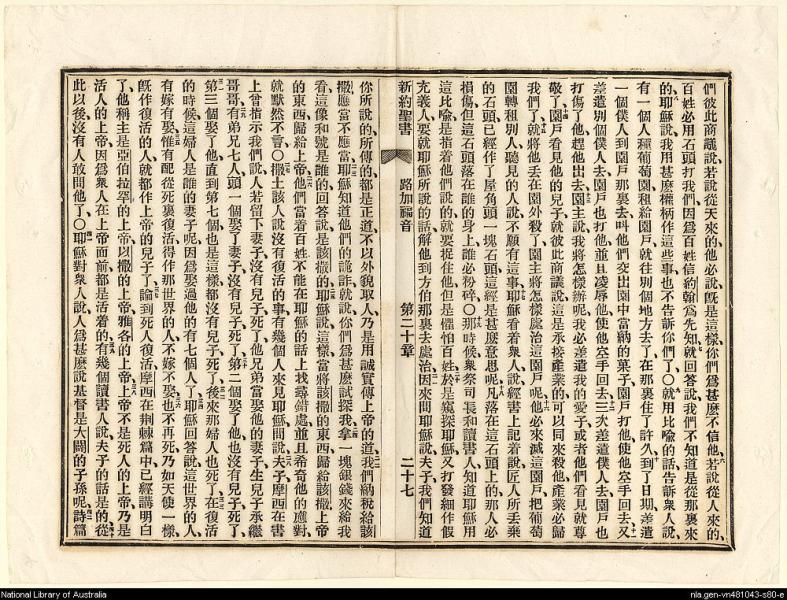 們彼此商議說若說從天來的他必說旣是這樣你們爲甚麽不信他若說從人來的
百姓必用石頭打我們因爲百姓信約翰爲先知就回答說我們不知道是從那裏來
的耶穌說我用甚麽權柄作這些事也不告訴你們了〇就用比喻的話告訴衆人說
有一個人種葡萄園租給園戶就往別個地方去了在那裏住了許久到了日期差遣
一個僕人到園戶那裏去叫他們交出園中當納的菓子園戶打他使他空手回去又
差遣別個僕人去園戶也打他並且凌辱他使他空手回去三次差遣僕人去園戶也
打傷了他趕他出去園主說我將怎樣辦呢我必差遣我的愛子或者他們看見就尊
敬了園戶看見他的兒子就彼此商議說這是承接產業的可以同來殺他產業必歸
我們了就將他丢在園外殺了園主將怎樣處治這園戶呢他必來滅這園戶把葡萄
園轉租別人聽見的人說不願有這事耶穌看着衆人說經書上記着說匠人所丢棄
的石頭已經作了屋角頭一塊石頭這經是甚麽意思呢凡落在這石頭上的那人必
損傷但這石頭落在誰的身上誰必粉碎〇那時候衆祭司長和讀書人知道耶穌用
這比喻是指着他們說的就要捉住他但是懼怕百姓於是窺探耶穌又打發細作假
充義人要就耶穌所說的話解他到方伯那裏去處治因來問耶穌說夫子我們知道
新約聖書 路加福音 第二十章 二十七
你所說的所傳的都是正道不以外貌取人乃是用誠實傳上帝的道我們納稅給該
撒應當不應當耶穌知道他們的詭詐就說你們爲甚麽試探我拿一塊銀錢來給我
看這像和號是誰的回答說是該撒的耶穌說這樣當將該撒的東西歸給該撒上帝
的東西歸給上帝他們當着百姓不能在耶穌的話上找尋錯處並且希奇他的應對
就默然不會〇撒土該人說沒有復活的事有幾個人來見耶穌問說夫子摩西在書
上曾指示我們說人若留下妻子沒有兒子死了他兄弟當娶他的妻子生兒子承繼
哥哥有弟兄七人頭一個娶了妻子沒有兒子死了第二個娶了他也沒有兒子死了
第三個娶了他直到第七個也是這樣都沒有兒子死了後來那婦人也死了在復活
的時候這婦人是誰的妻子呢因爲娶過他的有七個人了耶穌回答說這世界的人
有嫁有娶惟有配從死裏復活得作那世界的人不嫁不娶也不再死乃如天使一樣
旣作復活的人就都作上帝的兒子了論到死人復活摩西在荆棘篇中已經講明白
了他稱主是亞伯拉罕的上帝以撒的上帝雅各的上帝上帝不是死人的上帝乃是
活人的上帝因爲衆人在上帝面前都是活着的有幾個讀書人說夫子的話是的從
此以後沒有人敢問他了〇耶穌對衆人說人爲甚麽說基督是大闢的子孫呢詩篇
National Library of Australia
nla.gen-vn481043-s80-e